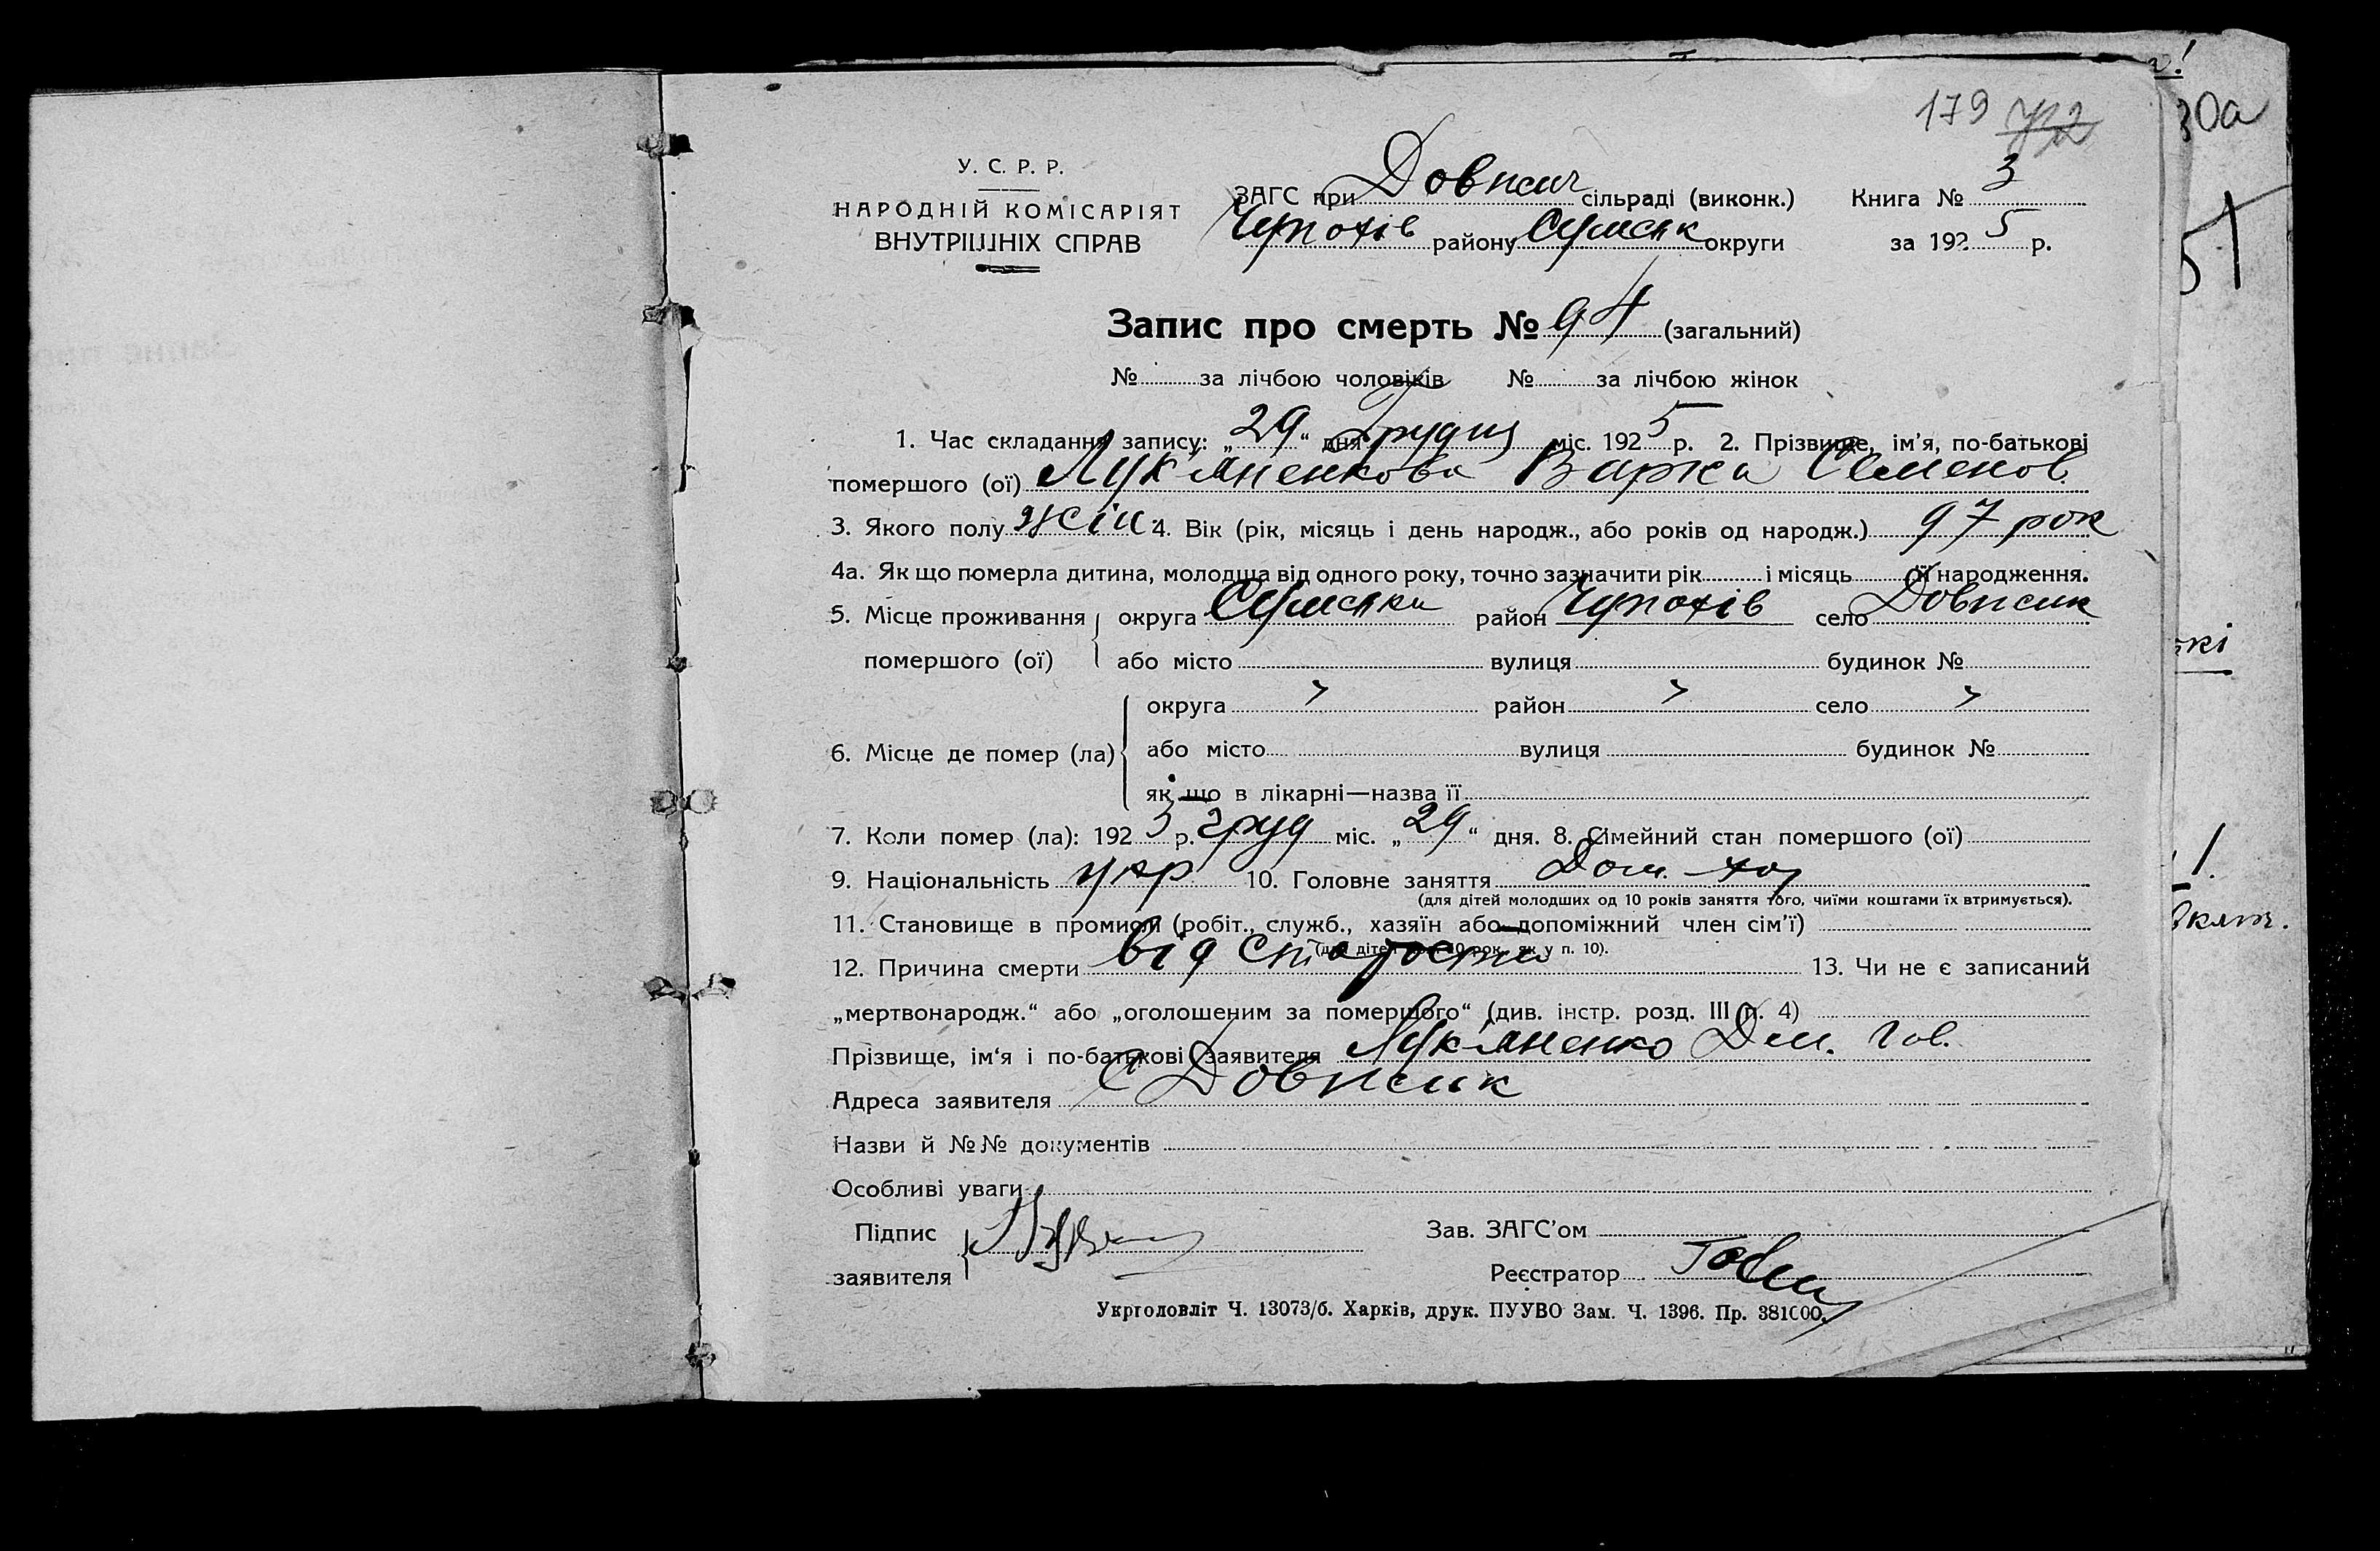 179
У. С. Р. Р.
НАРОДНІЙ КОМІСАРІЯТ
ВНУТРІШНІХ СПРАВ
ЗАГС при сільраді (виконк.) Книга № 3
району Сумськ округи за 192 5 р.
Запис про смерть № 94 (загальний)
№ за лічбою чоловіків № за лічбою жінок
1. Час складання запису: „ 29 “ дня Грудня міс. 192 5 р. 2. Прізвище, ім’я, по-батькові
помершого (ої) Лук'яненкова Варка Семенов.
3. Якого полу жін. 4. Вік (рік, місяць і день народж., або років од народж.) 97 рок
4а. Як що померла дитина, молодща від одного року, точно зазначити рік і місяць її народження.
5. Місце проживання округа Сумська район село
помершого (ої) або місто вулиця будинок №
округа район село
6. Місце де помер (ла) або місто вулиця будинок №
як що в лікарні—назва її
7. Коли помер (ла): 192 5 р. груд міс. „ 29 “ дня. 8. Сімейний стан помершого (ої)
9. Національність укр 10. Головне заняття Дом.
(для дітей молодших од 10 років заняття того, чиїми коштами їх втримується).
11. Становище в промислі (робіт., служб., хазяїн або допоміжний член сім’ї)
(для дітей 10 рок. як у п. 10).
12. Причина смерти від старости 13. Чи не є записаний
„мертвонародж.“ або „оголошеним за помершого“ (див. інстр. розд. III п. 4)
Прізвище, ім‘я і по-батькові заявителя Лук'яненко Дем.
Адреса заявителя
Назви й №№ документів
Особливі уваги
Підпис Зав. ЗАГС’ом
заявителя Реєстратор
Укрголовліт Ч. 13073/б. Харків, друк. ПУУВО Зам. Ч. 1396. Пр. 381000.